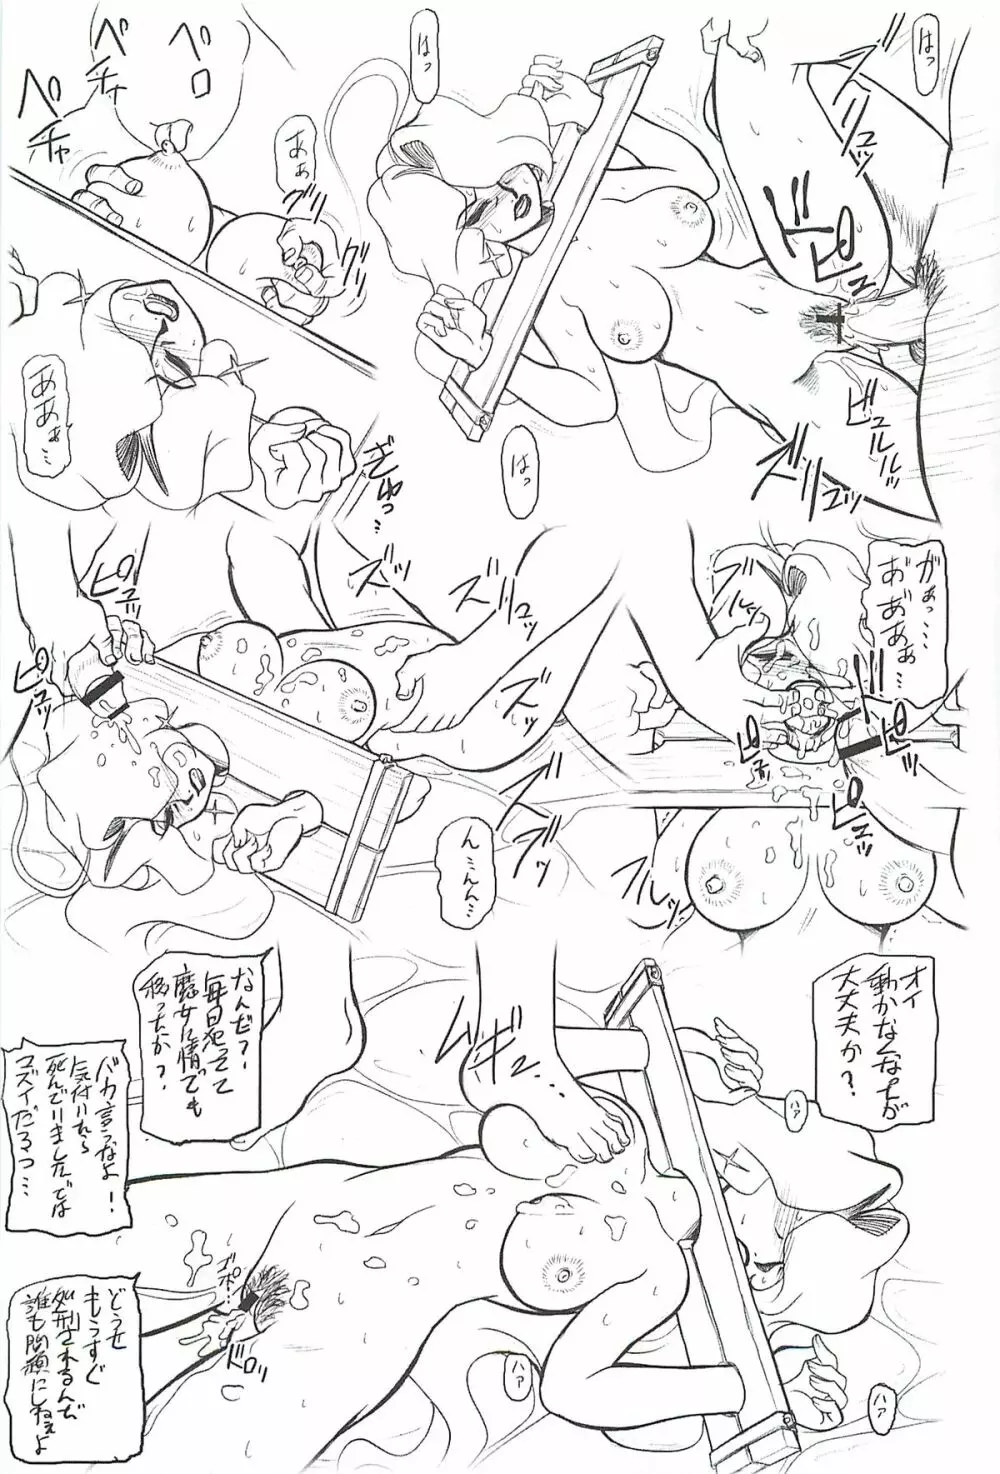 はっ
はっ
ズプ
ビュルルッ
ズリュッ
はっ
あぁ
グリ
グリ
ベロ
ベチャ
ペチャ
ああぁ…
ぎゅっ…
がぁっ……
あ゛あ゛あぁ…
ビュッ
ブルルッ
ズリュッ
ズッ
ズッ
ズッ
ピュッ
ピュッ
ん…んん…
オイ
動かなくなったが
大丈夫か？
ムギュ
なんだ？
毎日犯してて
魔女に情でも
移ったか？
バカ言うなよ！
気付いたら
死んでいましたでは
マズイだろっ…
どうせ
もうすぐ
処刑されるんだ
誰も問題にしねぇよ
ハァ
ハァ
ハァ
ズポ…
ドロッ